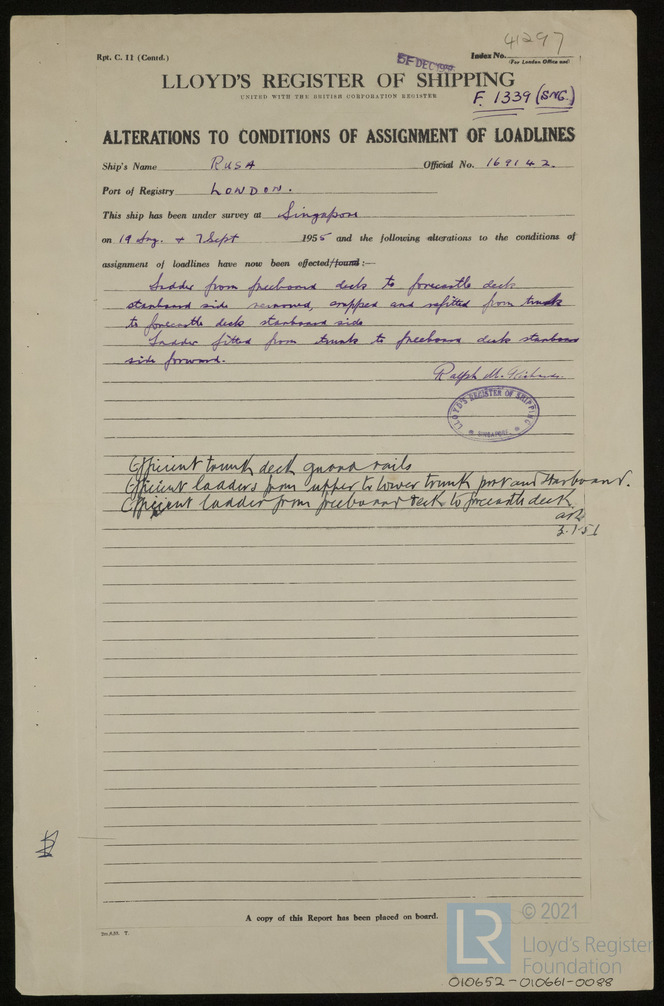 41297
Rpt. C. 11 (Contd.)
DEC
Index No.
(For London Office only)
LLOYD'S REGISTER OF SHIPPING
UNITED WITH THE BRITISH CORPORATION REGISTER
F. 1339 (SNG.)
ALTERATIONS TO CONDITIONS OF ASSIGNMENT OF LOADLINES
Ship's Name RUSA Official No. 169142.
Port of Registry LONDON.
This ship has been under survey at Singapore
on 19 Aug. + 7 Sept 1955 and the following alterations to the conditions of
assignment of loadlines have now been effected/found:—
Ladder from freeboard deck to forecastle deck
starboard side removed, cropped and refitted from trunk
to forecastle deck starboard side
Ladder fitted from trunk to freeboard deck starboard
side forward.
Ralph M.
LLOYD'S REGISTER OF SHIPPING
SINGAPORE
Efficient trunk deck guard rails
Efficient ladders from upper to lower trunk port and starboard.
Efficient ladder from freeboard deck to forecastle deck.
A copy of this Report has been placed on board.
T.
LR
© 2021
Lloyd's Register
Foundation
010652-010661-0088